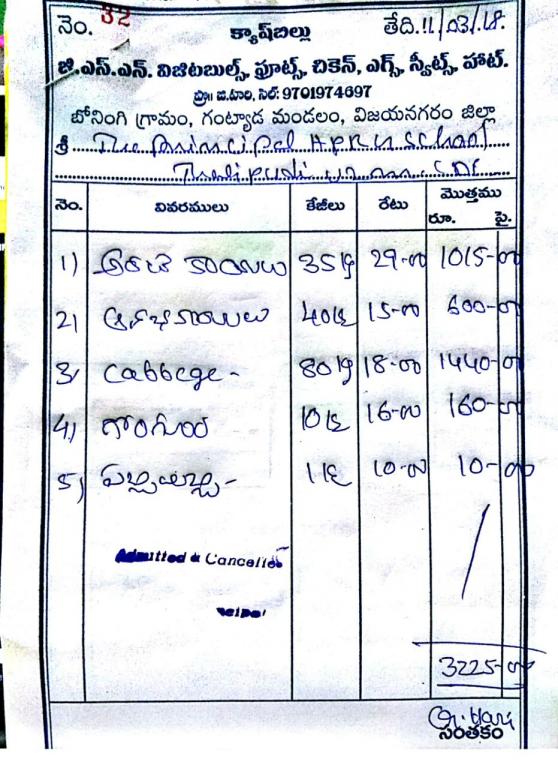 నెం. 32 క్యాష్‌బిల్లు తేది.11/03/18.
జి.ఎస్.ఎన్. విజిటబుల్స్, ఫ్రూట్స్, చికెన్, ఎగ్స్, స్వీట్స్, హాట్.
ప్రొ॥ జి.టాలి, సెల్: 9701974697
బోనంగి గ్రామం, గంట్యాడ మండలం, విజయనగరం జిల్లా
శ్రీ The Principal School
నెం. వివరములు కేజీలు రేటు మొత్తము
రూ. పై.
1) అరటి కాయలు 35 kg 29-00 1015-00
2) ఆనభకాయలు 40 kg 15-00 600-00
3) Cabbege - 80 kg 18-00 1440-00
4) గోంగూర 10 kg 16-00 160-00
5) 1 kg 10-00 10-00
Admitted & Cancelled
3225-00
సంతకం